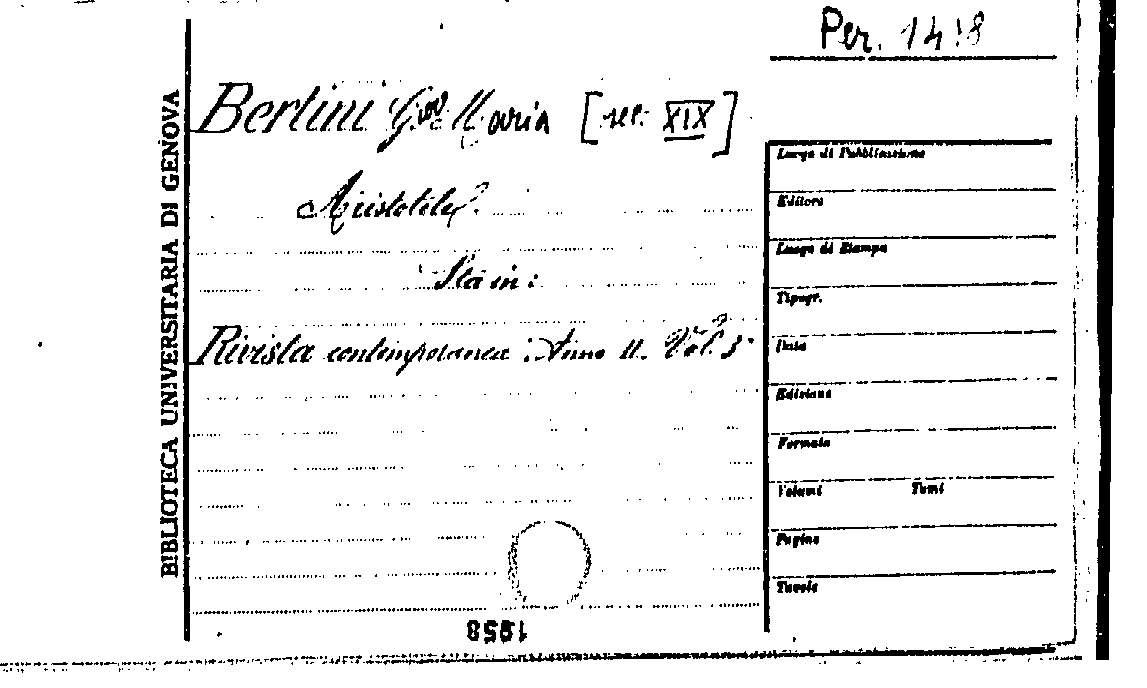 Per. 1418
BIBLIOTECA UNIVERSITARIA DI GENOVA
Bertini Giov. Maria [sec. XIX]
Aristotile.
Sta in:
Rivista contemporanea: Anno II. Vol.
Luogo di Pubblicazione
Editore
Luogo di Stampa
Tipogr.
Data
Edizione
Formato
Volumi Tomi
Pagine
Tavole
1958